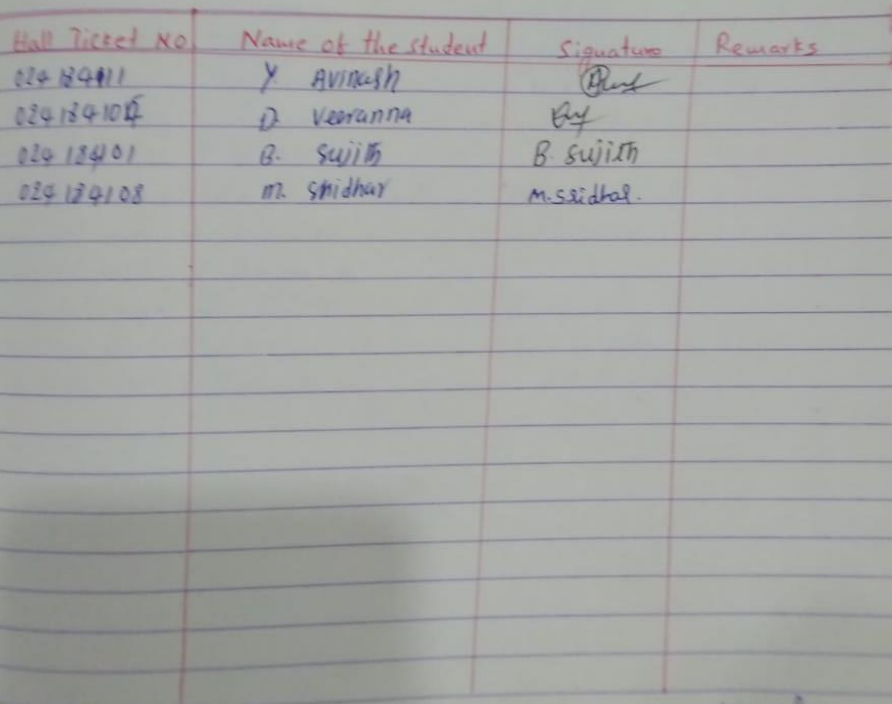 Hall Ticket No Name of the student Signature Remarks
Y Avinash
D. Veeranna
024184101 B. Sujith B. Sujith
024184108 M. Sridhar M. Sridhar.